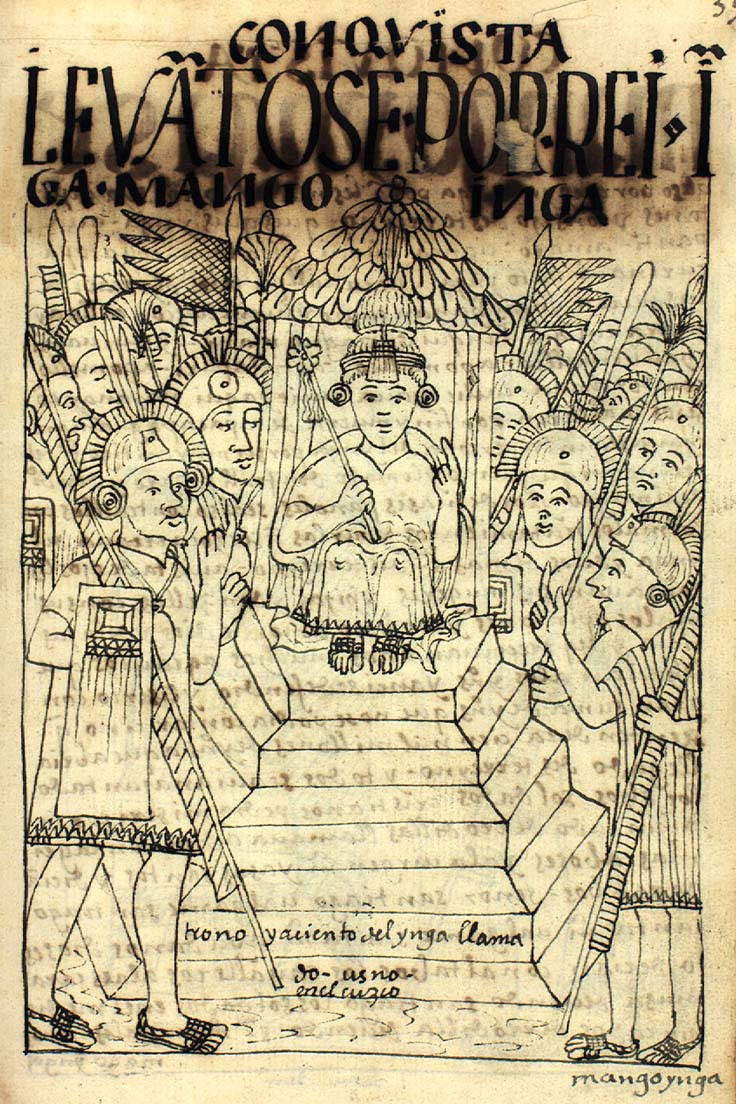 CONQVÏSTA
LEVÃTOSE·POR·REI·Ï
GA·MANGO INGA
trono y aciento del ynga llama
do-usno
en el cuzco
mango ynga